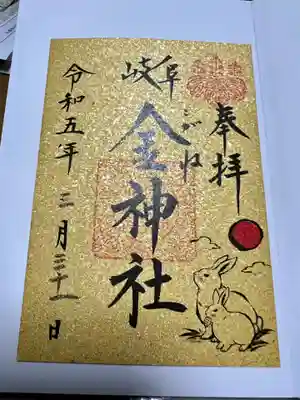 奉拝
岐阜
金神社
こがね
令和五年
三月三十一日